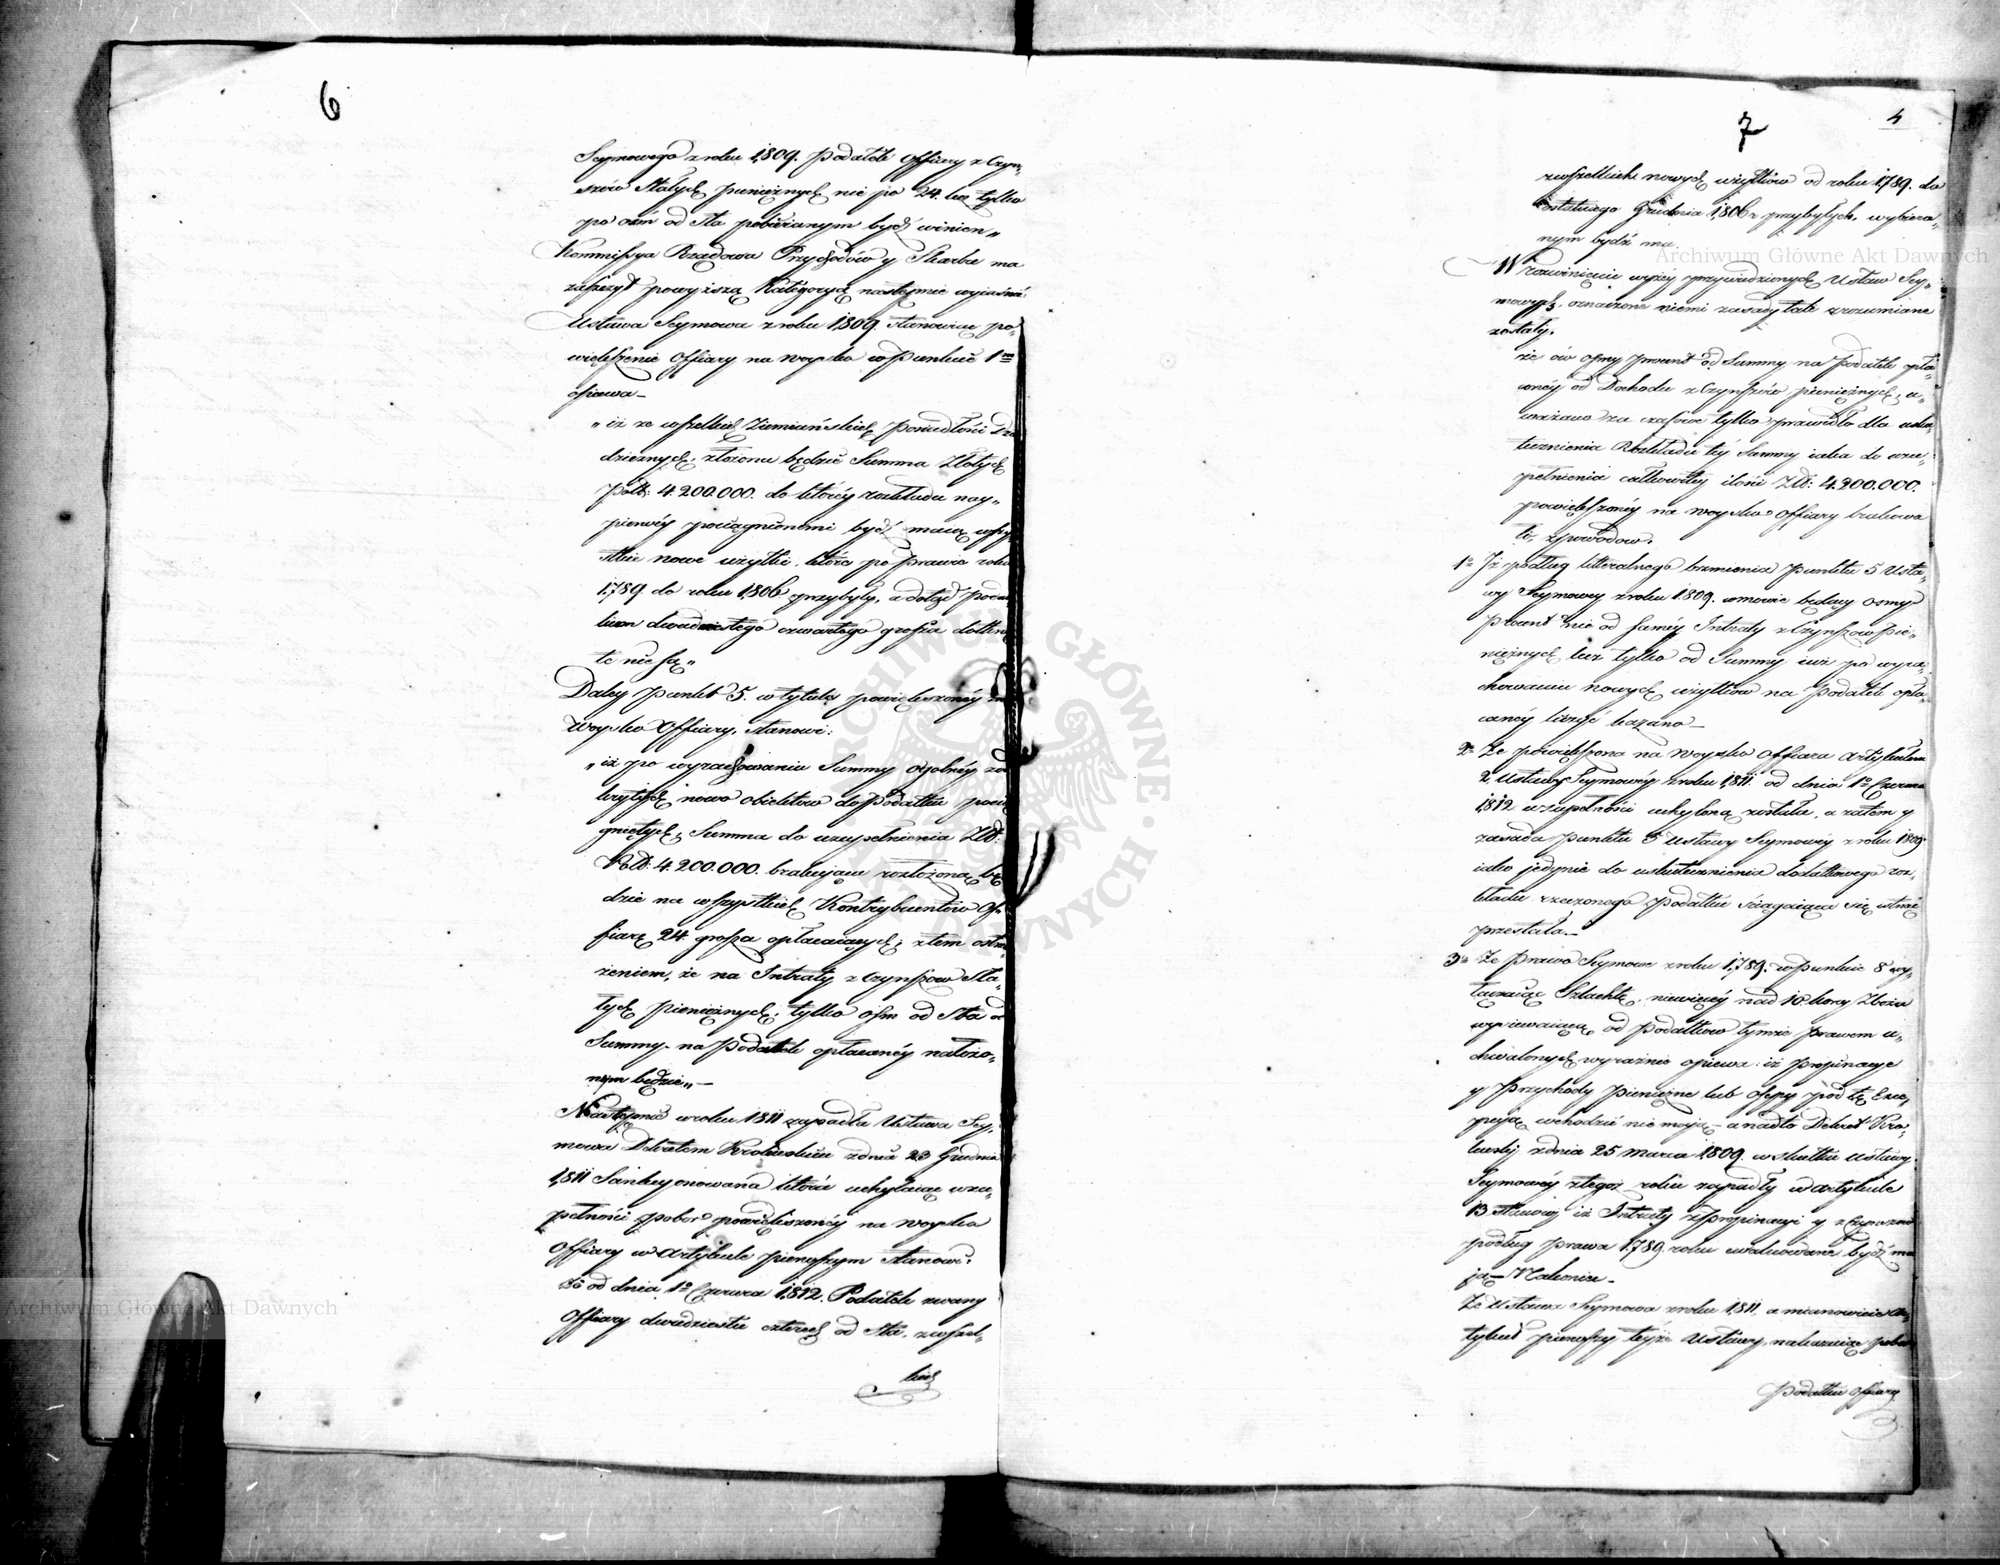 6
Seymowego z roku 1809. Podatek Offiary z Czyn-
szów Stałych pieniężnych nie po 24. lecz tylko
po ośm od Sta pobieranym być winien „
Kommissya Rządowa Przychodów y Skarbu ma
zaszczyt powyższą Kategoryą następnie wyjaśnić
Ustawa Seymowa z roku 1809. stanowiąc po-
większenie Offiary na woysko w Punkcie 1m
opiewa —
„ iż ze wszelkich Ziemiańskich Posiadłości Dzie
dzicznych, złożona będzie Summa Złotych
Pols: 4.200.000. do którey rozkładu nay-
pierwéy pociągnionemi być maią wszy
stkie nowe użytki, które po Prawie roku
1789 do roku 1806 przybyły, a dotąd Podat
kiem dwudziestego czwartego grosza dotknię
te nie są „
Daley Punkt 5. w tytule powiększonéy na
Woysko Offiary, stanowi:
„ iż po wyrachowaniu Summy ogólnéy z od
krytych nowo obiektów do Podatku pocią
gniętych, Summa do uzupełnienia Zlt:
Pol: 4.200.000. brakująca rozłożoną bę
dzie na wszystkich Kontrybuentów Of-
fiarę 24. grosza opłacaiących, z tem ostrze
żeniem, że na Intraty z Czynszow Sta-
łych pieniężnych, tylko ośm od Sta od
Summy na Podatek opłacanéy nałożo-
nym będzie „ —
Następnie w roku 1811 zapadła Ustawa Sey-
mowa Dekretem Królewskim z dnia 23 Grudnia
1811 Sankcyonowana która uchylaiąc w zu-
pełności pobor powiększonéy na woysko
Offiary w Artykule pierwszym stanowi:
że od dnia 1o Czerwca 1812. Podatek zwany
Offiary dwudziestu czterech od Sta, z wszel-
kich
7
4
z wszelkich nowych użytków od roku 1789. do
ostatniego Grudnia 1806 r przybyłych, wybiera-
nym bydź ma.
W rozwinięciu wyżey przywiedzionych Ustaw Sey-
mowych, oznaczone niemi zasady tak zrozumiane
zostały.
że ów osmy procent od Summy na Podatek opła-
canéy od Dochodu z Czynszów pieniężnych, u-
ważano za czasowe tylko prawidło dla usku-
tecznienia Rozkładu téy Summy iaka do uzu-
pełnienia całkowitéy ilości Zlt: 4.200.000.
powiększonéy na woysko Offiary brakowa
ła, z powodow.
1o Iż podług litteralnego brzmienia Punktu 5 Usta-
wy Seymowey z roku 1809. w mowie będący osmy
Procent nie od saméy Intraty z Czynszow Pie-
niężnych lecz tylko od Summy iuż po wyra-
chowaniu nowych użytków na Podatek opła-
canéy liczyć kazano —
2o Że powiększona na Woysko Offiara Artykułem
2 Ustawy Seymowéy z roku 1811. od dnia 1o Czerwca
1812 w zupełności uchyloną została, a zatem y
zasada Punktu 5 Ustawy Seymowéy z roku 1809
iako jedynie do uskutecznienia dodatkowego roz-
kładu rzeczonego Podatku ściągaiąca się istnieć
przestała. —
3o Że Prawo Seymowe z roku 1789. w Punkcie 8 wy-
łączaiąc Szlachtę, niewięcéy nad 10 korcy Zboża
wysiewaiącą, od podatkow tymże Prawem u-
chwalonych, wyraźnie opiewa: iż Propinacye
y Przychody Pieniężne lub Osepy pod tę Exce-
pcyą wchodzić nie mają — a nadto Dekret Kró-
lewski z dnia 25 Marca 1809. w skutku Ustawy
Seymowéy z tegoż roku zapadły w Artykule
13 stanowi iż Intraty z Propinacyi y z Czynszow
podług Prawa 1789 roku ewaluowane być ma
ją — Nakoniec —
Że Ustawa Seymowa z roku 1811. a mianowicie Ar-
tykuł pierwszy teyże Ustawy, nakazuiąc pobor
Podatku Offiary
Archiwum Główne Akt Dawnych
Archiwum Główne Akt Dawnych
ARCHIWUM GŁÓWNE AKT DAWNYCH